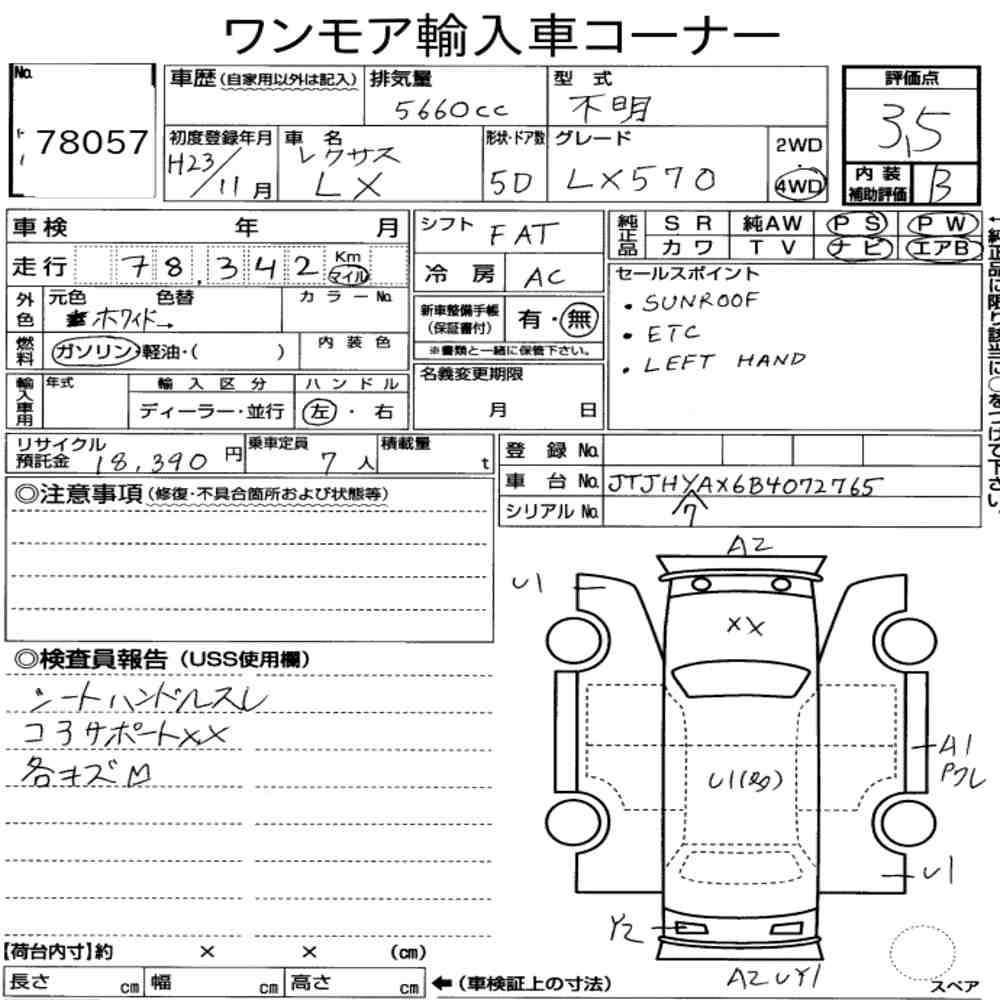 ワンモア輸入車コーナー
No.
78057
車歴(自家用以外は記入)
排気量
5660cc
型 式
不明
初度登録年月
H23/11月
車 名
レクサス
LX
形状・ドア数
5D
グレード
LX570
2WD
4WD
評価点
3,5
内 装
補助評価
B
車検 年 月
走行 78,342 Km
マイル
外色
元色 色替
ホワイト→
カラーNo.
燃料
ガソリン・軽油・( )
内 装 色
輸入車用
年式
輸 入 区 分
ディーラー・並行
ハ ン ド ル
左 ・ 右
シフト FAT
冷 房 AC
新車整備手帳
(保証書付)
有・無
※書類と一緒に保管下さい。
名義変更期限
月 日
純正品
S R 純AW P S P W
カ ワ T V ナ ビ エアB
セールスポイント
・SUNROOF
・ETC
・LEFT HAND
←純正品に限り該当に○をつけて下さい。
リサイクル
預託金 18,390 円
乗車定員
7 人
積載量
t
登 録 No.
車 台 No. JTJHYAX6B4072765
7
シリアル No.
◎注意事項(修復・不具合箇所および状態等)
◎検査員報告(USS使用欄)
シートハンドルスレ
コアサポートXX
各キズ凹
A2
U1
XX
A1
Pクレ
U1(多)
U1
Y2
A2 U Y1
スペア
【荷台内寸】約 × × (cm)
長さ cm 幅 cm 高さ cm ←(車検証上の寸法)